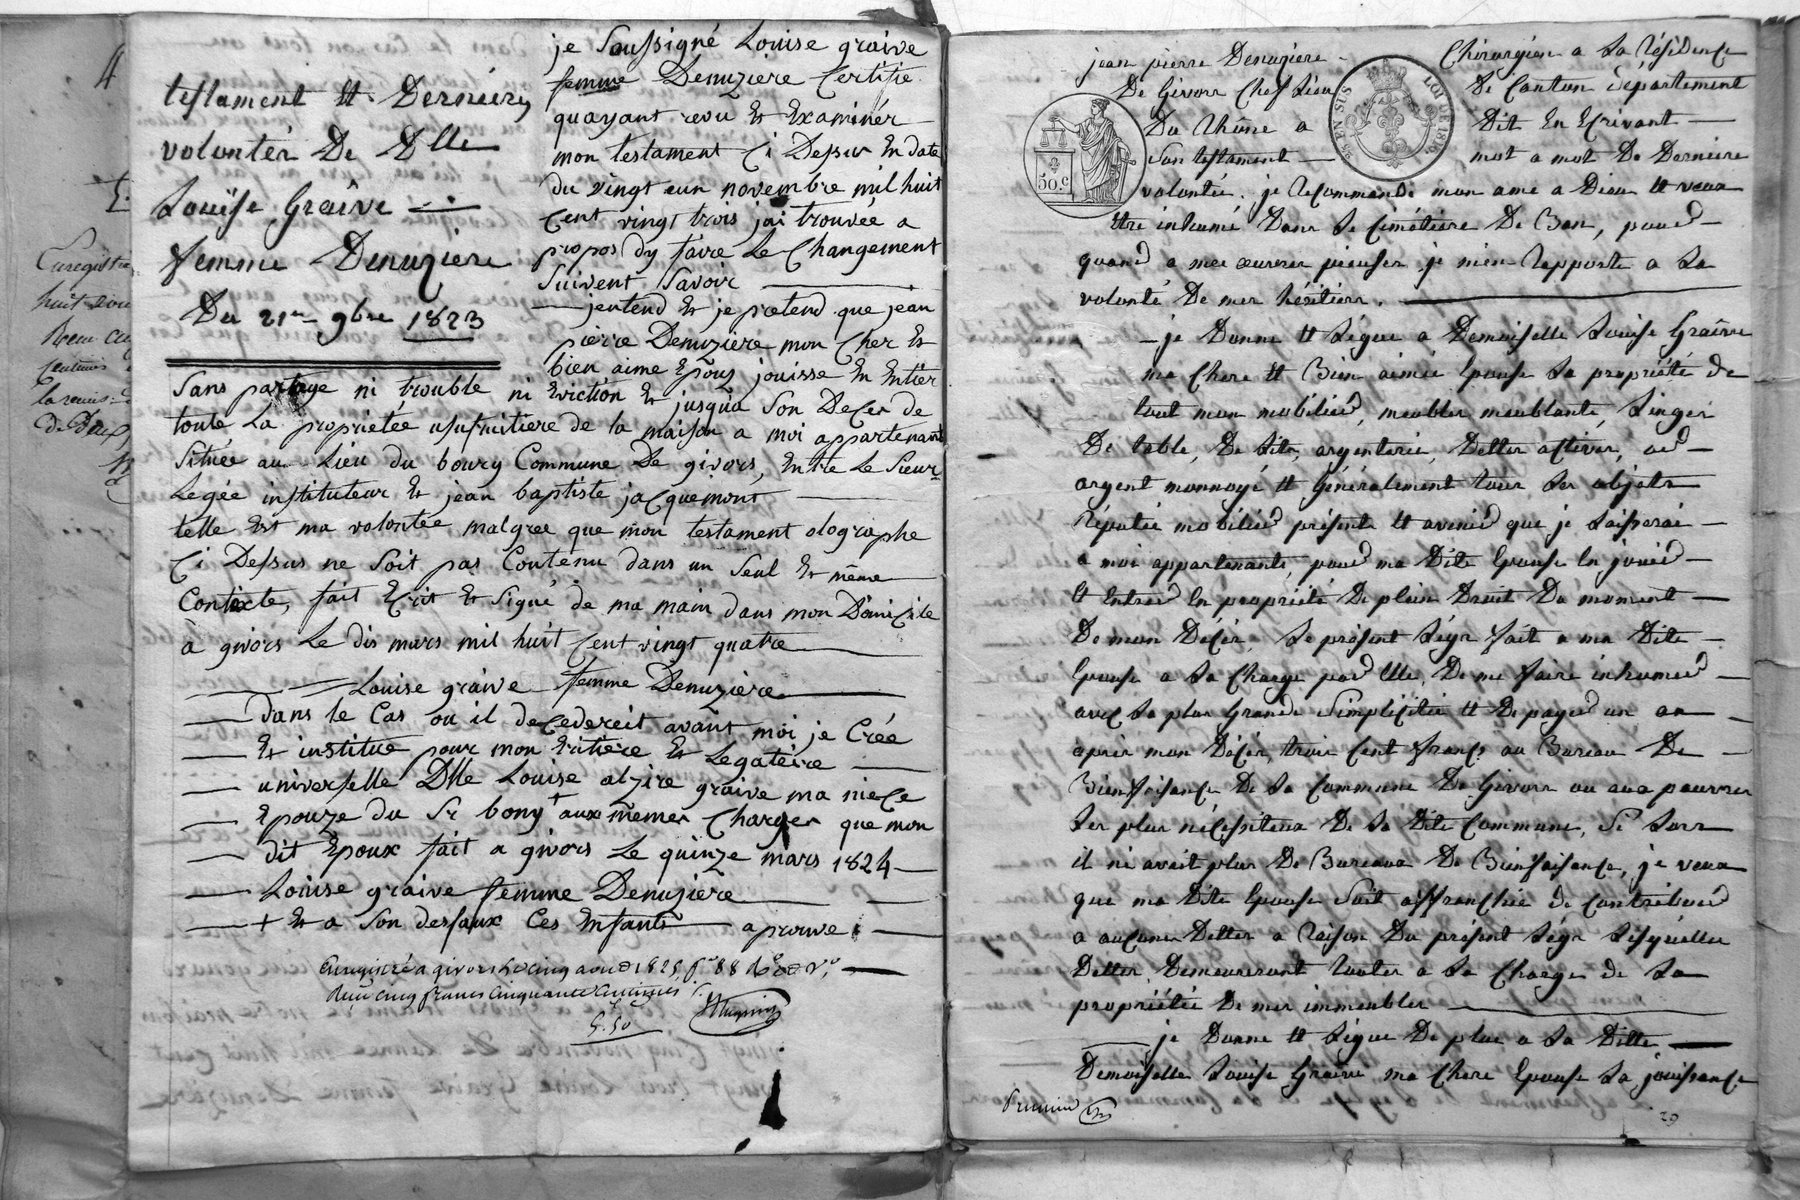 4
testament et Dernieres
volontér De Dlle
Louïse Graîve
femme Denuziere
Du 21en 9bre 1823
je Soussigné Louise graive
femme Denuziere Certifie
quayant revu Et Examinér
mon testament Ci Dessus En date
Du vingt eun novembre mil huit
Cent vingt trois jai trouvée a
propos dy faire Le Changement
Suivent Savoir
jentend Et je pretend que jean
pierre Denuziere mon Cher Et
bien aime Epouz jouisse En Entier
Sans partage ni trouble ni Eviction Et jusqua Son Deces de
toute La proprietée usufruitiere de la maison a moi appartenant
Située au Lieu du bourg Commune De givors, Entre Le Sieur
Legée instituteur Et jean baptiste jacquemont
telle Est ma volontée malgree que mon testament olographe
Ci Dessus ne Soit pas Contenu dans un Seul Et même
Contexte, fait Ecrit Et Signé de ma main dans mon Domicile
à givors Le dis mars mil huit Cent vingt quatre
Louise graive femme Denuziere
dans le Cas ou il decederoit avant moi je Créé
Et institue pour mon Eritière Et Legatéire
universelle Dlle Louise alzire graive ma niece
Epouze du Sr bony + aux mêmes Charges que mon
dit Epoux fait a givors Le quinze mars 1824
Louise graive femme Denuziere
+ Et a Son deffaux Ces Enfants aprouve
Enregistré a givors le cinq aout 1825 fo 88
Reçu cinq francs cinquante centimes
5.50
jean pierre Denuziere Chirurgien a La résidence
De Givors Chef Lieu De Canton département
Du Rhône a Dit En Ecrivant
Son testament mot a mot De Derniere
volontée. je recommande mon ame a Dieu Et veux
Etre inhumé Dans Le Cimétiere De Bon, pour
quand a mes oeuvres pieuses je m'en rapporte a La
volonté De mes héritiers.
je Donne Et Légue a Demoiselle Louise Graîve
ma Chere Et Bien aimée Epouse La propriété de
tout mon mobilier, meubles meublants, Linges
De table, De Lits, argenterie, Dettes actives, or
argent monnoyé Et Généralement tous Les objets
réputée mobilier présents Et avenir que je Laisserai
a moi appartenants, pour ma Dite Epouse En jouir
Et Entrer En propriété De plein Droit Du moment
De mon Décés, Le présent Légs fait a ma Dite
Epouse a La Charge par Elle, De me faire inhumer
avec La plus Grande Simplicitée Et De payer un an
aprés mon Décés, trois Cent francs au Bureau De
Bienfaisance De La Commune De Givors ou aux pauvres
Les plus nécessiteux De La Dite Commune, Si Lors
il ni avait plus De Bureaux De Bienfaisance, je veux
que ma Dite Epouse Soit affranchie de Contribuer
a aucunes Dettes a raison Du présent Légs Lesquelles
Dettes Demeureront toutes a La Charge de La
propriétée De mes immeubles
je Donne Et Légue De plus a La Ditte
Demoiselle Louise Graîve ma Chere Epouse La jouissance
premier
29
50.c
EN SUS
LOI DE 1816
Enregistré